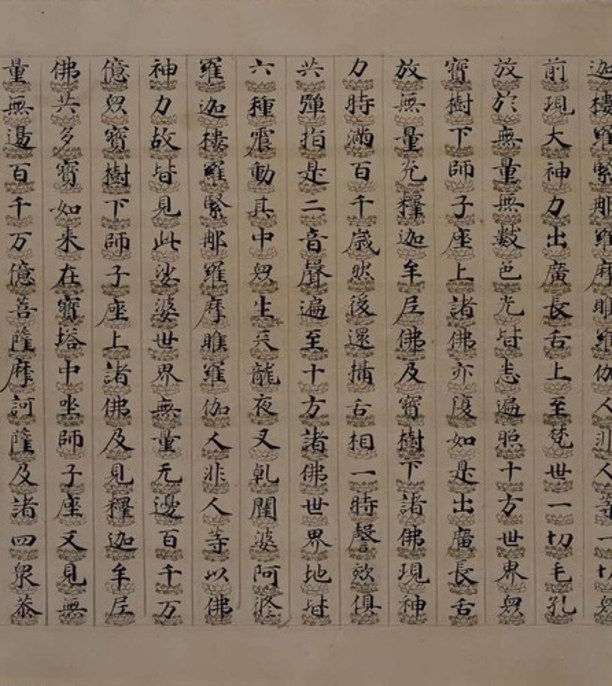 迦樓羅緊那羅摩睺羅伽人非人等一切衆
前現大神力出廣長舌上至梵世一切毛孔
放於無量無數色光皆悉遍照十方世界衆
寶樹下師子座上諸佛亦復如是出廣長舌
放無量光釋迦牟尼佛及寶樹下諸佛現神
力時滿百千歲然後還攝舌相一時謦欬俱
共彈指是二音聲遍至十方諸佛世界地皆
六種震動其中衆生天龍夜叉乹闥婆阿修
羅迦樓羅緊那羅摩睺羅伽人非人等以佛
神力故皆見此娑婆世界無量无邊百千万
億衆寶樹下師子座上諸佛及見釋迦牟尼
佛共多寶如来在寶塔中坐師子座又見無
量無邊百千万億菩薩摩訶薩及諸四衆恭